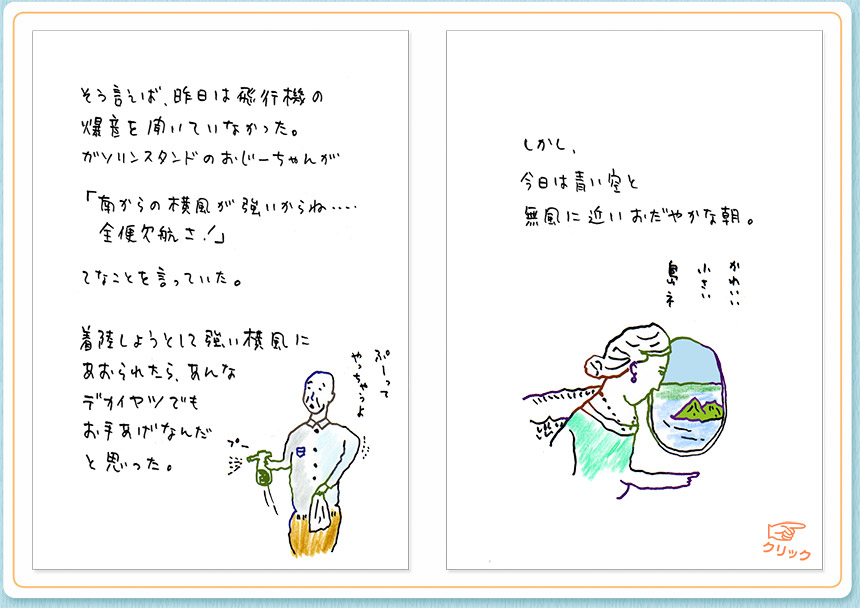 そう言えば、昨日は飛行機の
爆音を聞いていなかった。
ガソリンスタンドのおじーちゃんが
「南からの横風が強いからね……
全便欠航さ!」
てなことを言っていた。
着陸しようとして強い横風に
あおられたら、あんな
デカイヤツでも
お手あげなんだ
と思った。
ぷーって
やっちゃうよ
プー
しかし、
今日は青い空と
無風に近いおだやかな朝。
かわいい
小さい
島ネ
クリック